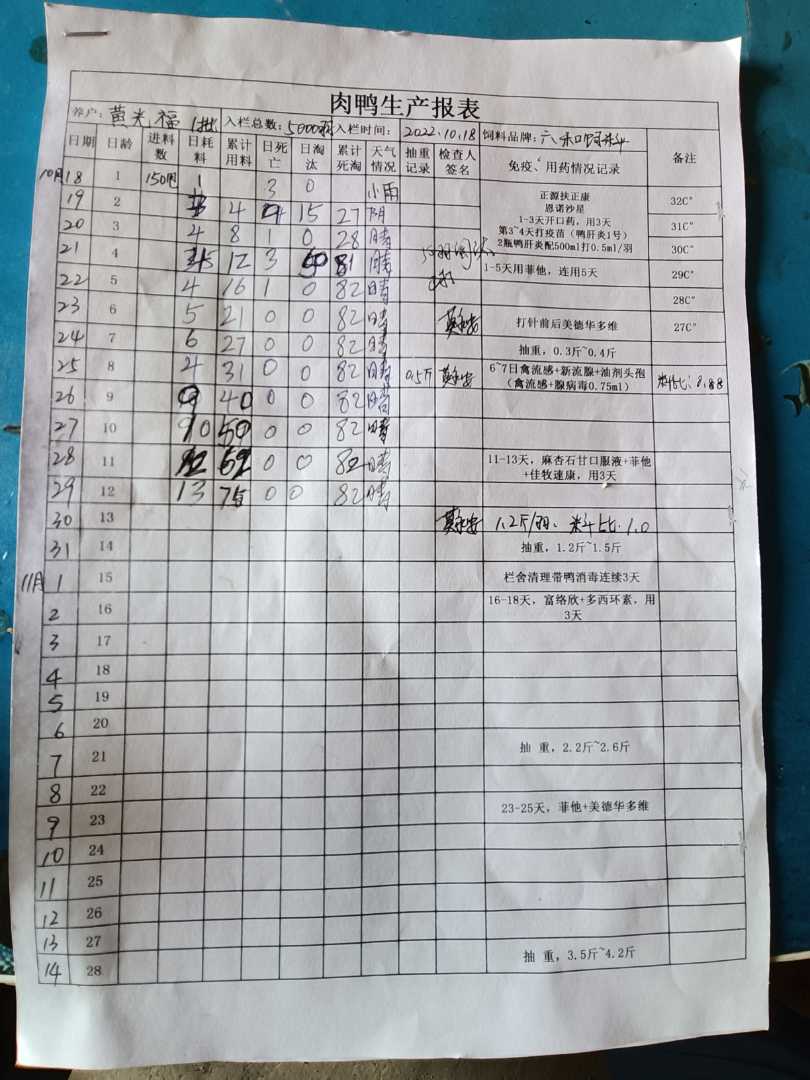 肉鸭生产报表
养户：黄光福 1批 入栏总数：5000羽 入栏时间：2022.10.18 饲料品牌：六和饲料
日期 日龄 进料数 日耗料 累计用料 日死亡 日淘汰 累计死淘 天气情况 抽重记录 检查人签名 免疫、用药情况记录 备注
10月18 1 150包 1 3 0 小雨 正源扶正康 32C°
恩诺沙星
19 2 4 15 27 阴 1-3天开口药，用3天 31C°
第3~4天打疫苗（鸭肝炎1号）
20 3 4 8 1 0 28 晴 2瓶鸭肝炎配500ml打0.5ml/羽 30C°
21 4 12 3 50 81 晴 1-5天用菲他，连用5天 29C°
22 5 4 16 1 0 82 晴 28C°
23 6 5 21 0 0 82 晴 打针前后美德华多维 27C°
24 7 6 27 0 0 82 晴 抽重，0.3斤~0.4斤
25 8 4 31 0 0 82 晴 0.5斤 6~7日禽流感+新流腺+油剂头孢 料比：0.88
（禽流感+腺病毒0.75ml）
26 9 9 40 0 0 82 晴
27 10 10 50 0 0 82 晴
28 11 12 62 0 0 82 晴 11-13天，麻杏石甘口服液+菲他
+佳牧速康，用3天
29 12 13 75 0 0 82 晴
30 13 1.2斤/羽、料比.1.0
31 14 抽重，1.2斤~1.5斤
11月1 15 栏舍清理带鸭消毒连续3天
2 16 16-18天，富络欣+多西环素，用
3天
3 17
4 18
5 19
6 20
7 21 抽 重，2.2斤~2.6斤
8 22
9 23 23-25天，菲他+美德华多维
10 24
11 25
12 26
13 27
14 28 抽 重，3.5斤~4.2斤